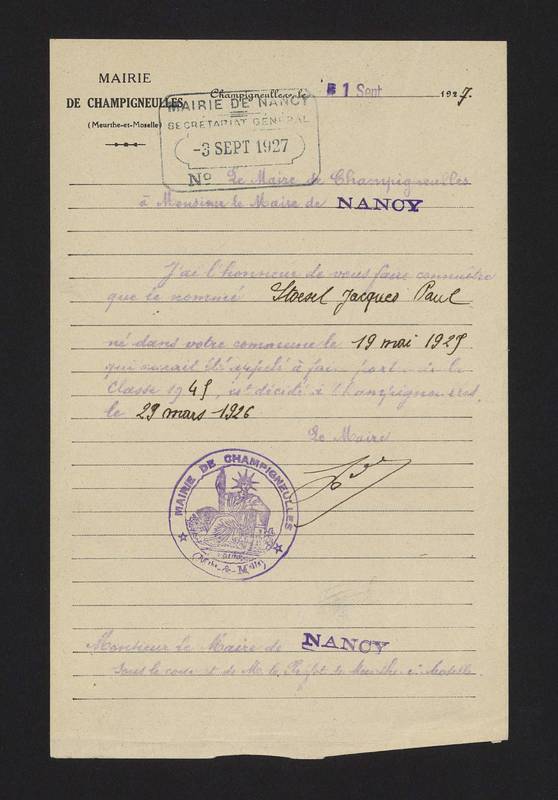 MAIRIE
DE CHAMPIGNEULLES
(Meurthe-et-Moselle)
Champigneulles, le 1 Sept 1927.
MAIRIE DE NANCY
SECRÉTARIAT GÉNÉRAL
-3 SEPT 1927
No
Le Maire de Champigneulles
à Monsieur le Maire de NANCY
J'ai l'honneur de vous faire connaître
que le nommé Jacques Paul
né dans votre commune le 19 mai 1925
qui aurait été appelé à faire
Classe 1945, est décédé à Champigneulles,
le 29 mars 1926
Le Maire
MAIRIE DE CHAMPIGNEULLES
(Mthe-&-Mlle)
Monsieur le Maire de NANCY
Sous le de Mr le Préfet de Meurthe & Moselle